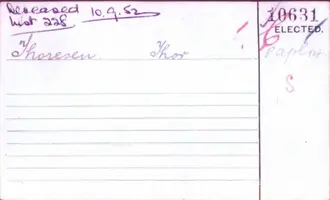 Deceased 10.9.52
List 228
10631
ELECTED.
Thoresen Thor
S